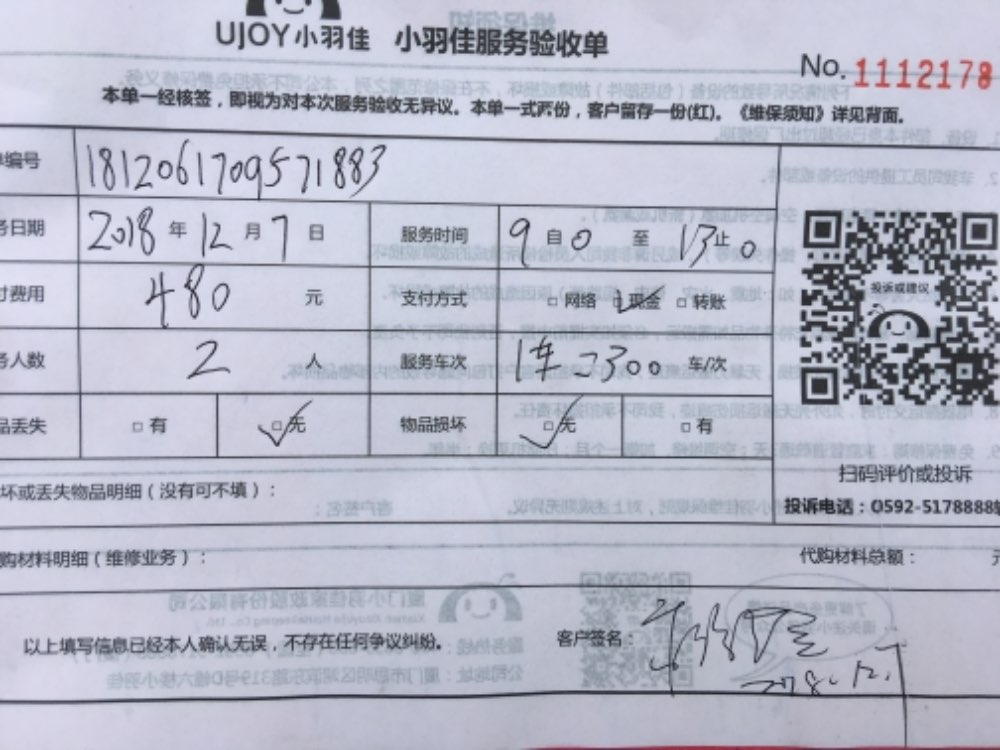 UJOY小羽佳 小羽佳服务验收单
No. 1112178
本单一经核签，即视为对本次服务验收无异议。本单一式两份，客户留存一份(红)。《维保须知》详见背面。
单编号 1812061709571883
务日期 2018 年 12 月 7 日 服务时间 9 自 0 至 13 止 0
付费用 480 元 支付方式 □ 网络 □ 现金 □ 转账
务人数 2 人 服务车次 1车 300 车/次
品丢失 □ 有 □ 无 物品损坏 □ 无 □ 有
投诉或建议
扫码评价或投诉
坏或丢失物品明细（没有可不填）：
投诉电话：0592-5178888
购材料明细（维修业务）： 代购材料总额： 元
以上填写信息已经本人确认无误，不存在任何争议纠纷。 客户签名：
2018.12.7